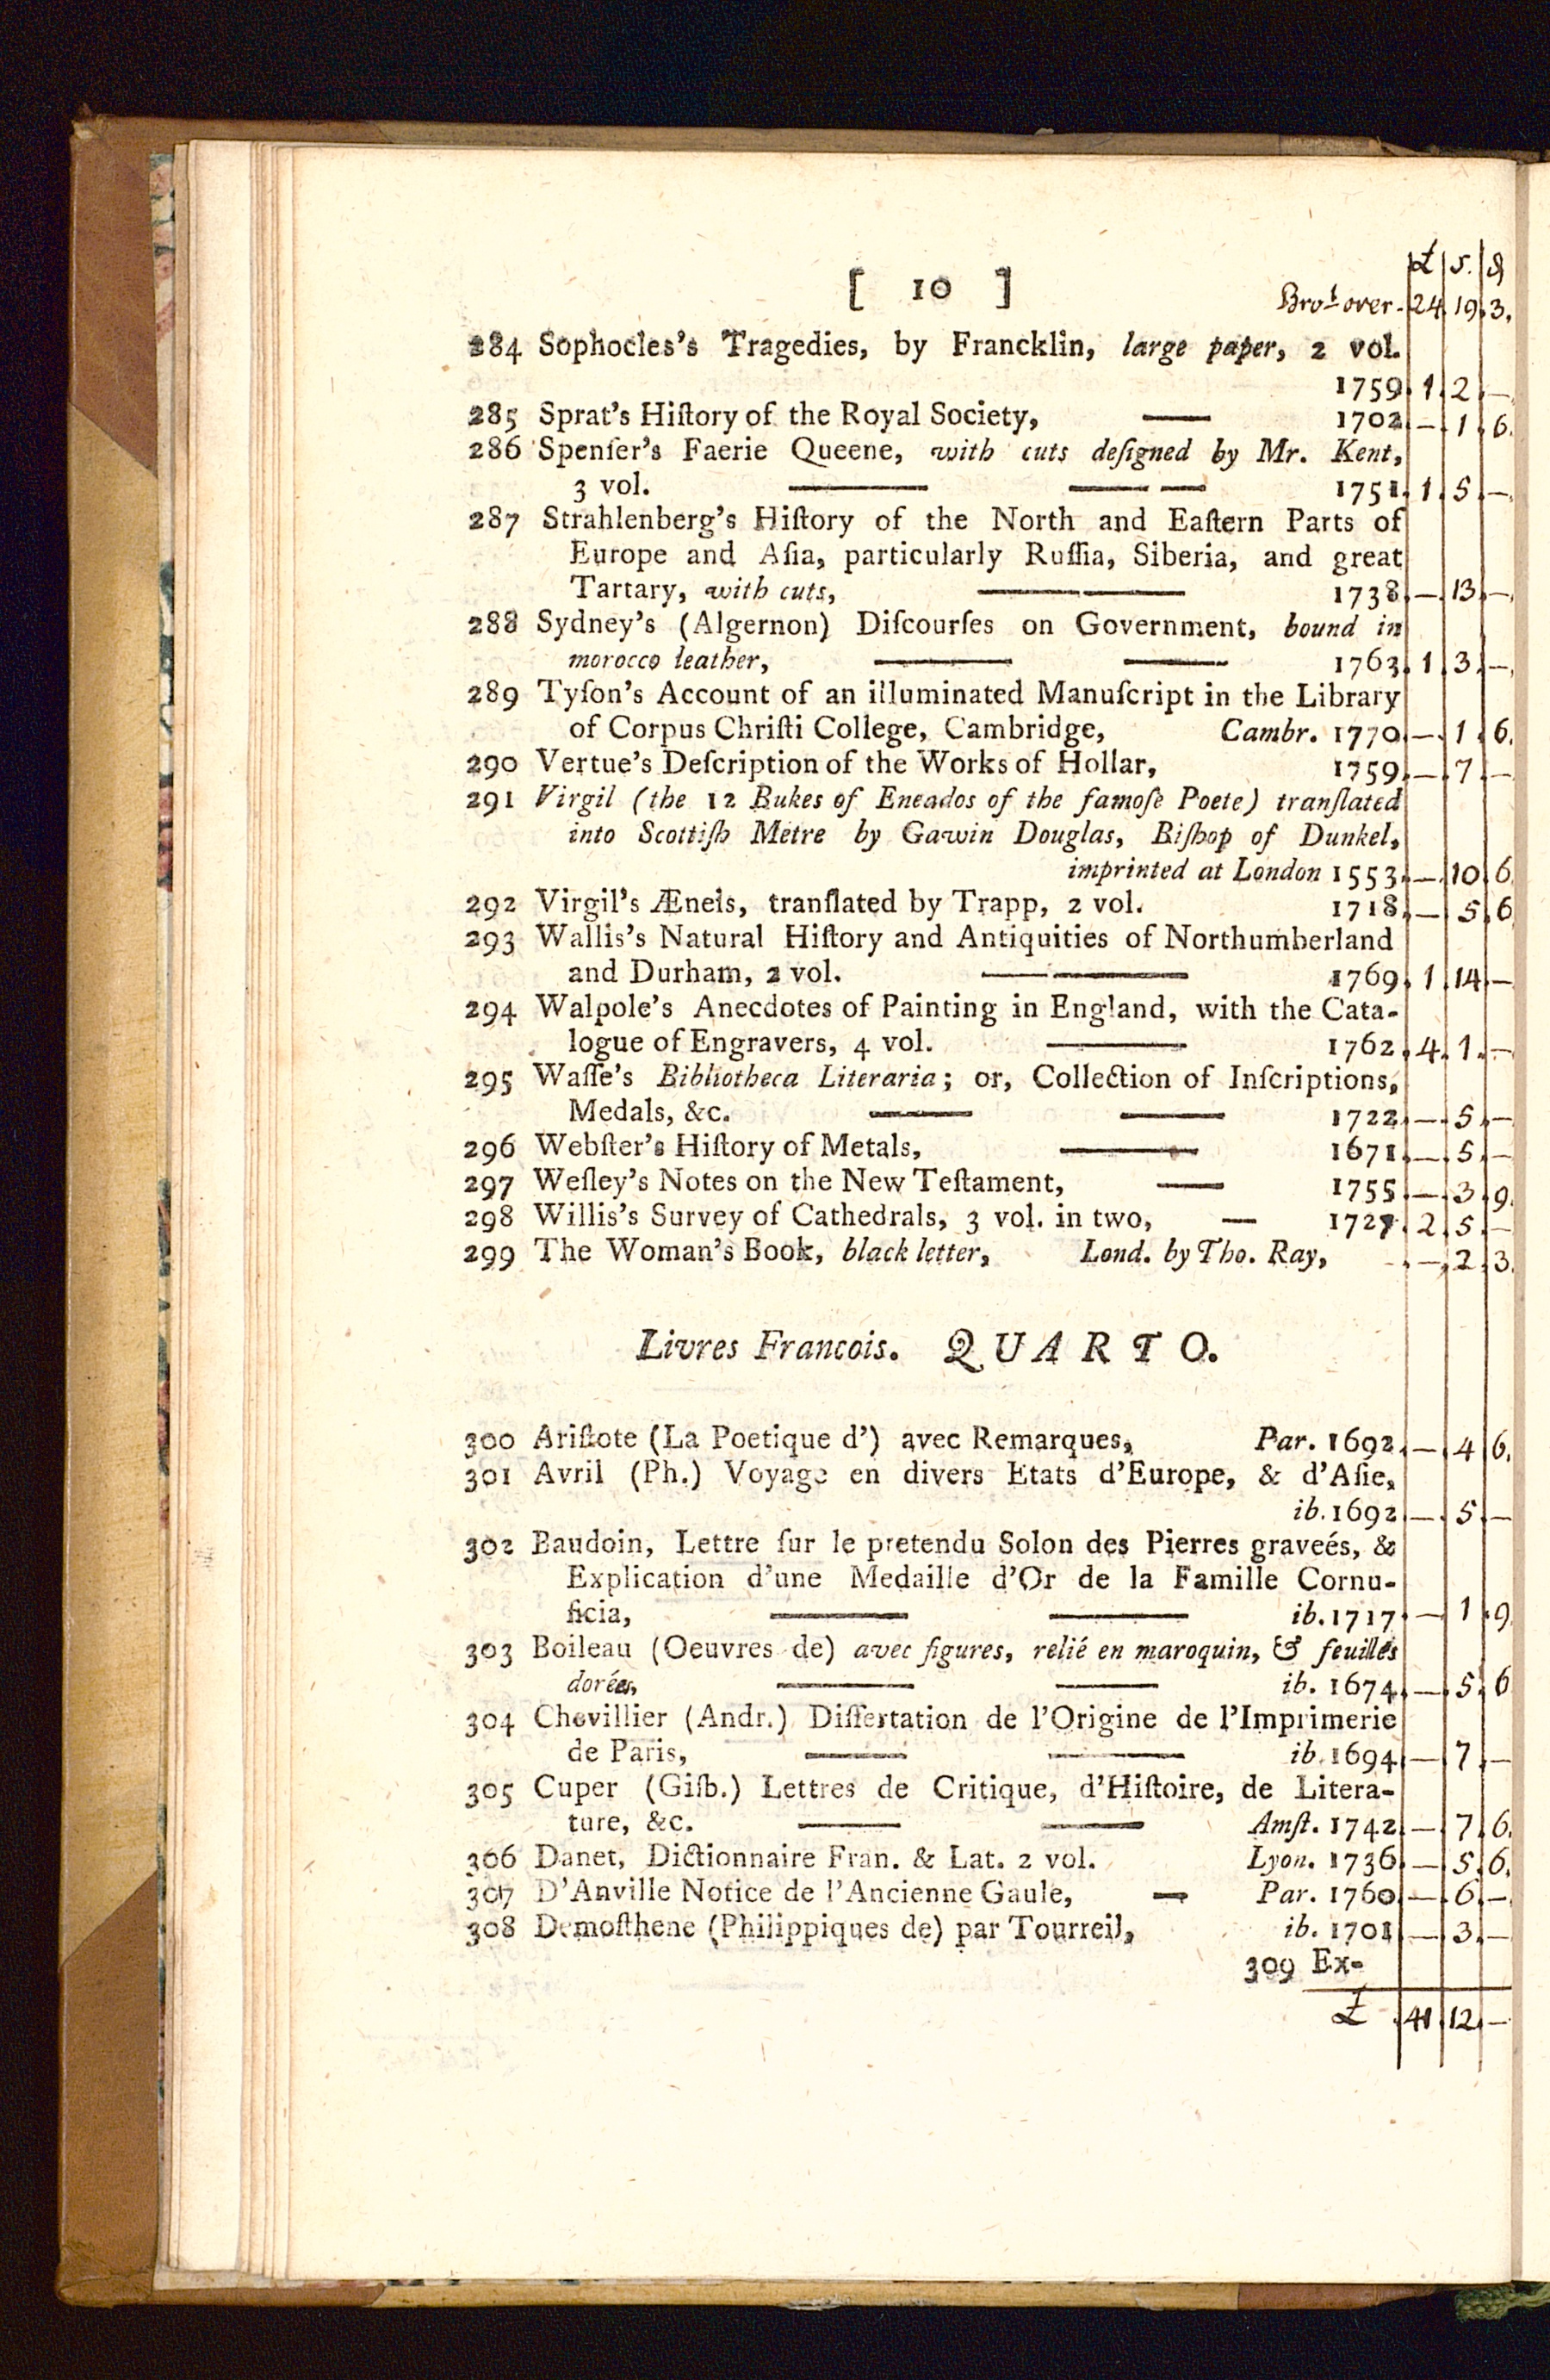 £ s. d
[ 10 ] Bro.t over. 24. 19. 3.
284 Sophocles's Tragedies, by Francklin, large paper, 2 vol.
1759. 1. 2. —
285 Sprat's Hiſtory of the Royal Society, —— 1702 — 1. 6.
286 Spenſer's Faerie Queene, with cuts deſigned by Mr. Kent,
3 vol. —— —— 1751. 1. 5. —
287 Strahlenberg's Hiſtory of the North and Eaſtern Parts of
Europe and Aſia, particularly Ruſſia, Siberia, and great
Tartary, with cuts, —— 1738. —. 13. —
288 Sydney's (Algernon) Diſcourſes on Government, bound in
morocco leather, —— —— 1763. 1. 3. —
289 Tyſon's Account of an illuminated Manuſcript in the Library
of Corpus Chriſti College, Cambridge, Cambr. 1770. —. 1. 6.
290 Vertue's Deſcription of the Works of Hollar, 1759. —. 7. —
291 Virgil (the 12 Bukes of Eneados of the famoſe Poete) tranſlated
into Scottiſh Metre by Gawin Douglas, Biſhop of Dunkel,
imprinted at London 1553. —. 10. 6.
292 Virgil's Æneis, tranſlated by Trapp, 2 vol. 1718. —. 5. 6
293 Wallis's Natural Hiſtory and Antiquities of Northumberland
and Durham, 2 vol. —— 1769. 1. 14. —
294 Walpole's Anecdotes of Painting in England, with the Cata-
logue of Engravers, 4 vol. —— 1762. 4. 1. —
295 Waſſe's Bibliotheca Literaria; or, Collection of Inſcriptions,
Medals, &c. —— —— 1722. —. 5. —
296 Webſter's Hiſtory of Metals, —— 1671. —. 5. —
297 Weſley's Notes on the New Teſtament, —— 1755. —. 3. 9.
298 Willis's Survey of Cathedrals, 3 vol. in two, — 1727. 2. 5. —
299 The Woman's Book, black letter, Lond. by Tho. Ray, —. 2. 3.
Livres Francois. QUARTO.
300 Ariſtote (La Poetique d') avec Remarques, Par. 1692. —. 4. 6.
301 Avril (Ph.) Voyage en divers Etats d'Europe, & d'Aſie,
ib. 1692 —. 5. —
302 Baudoin, Lettre ſur le pretendu Solon des Pierres graveés, &
Explication d'une Medaille d'Or de la Famille Cornu-
ficia, —— —— ib. 1717. —. 1. 9.
303 Boileau (Oeuvres de) avec figures, relié en maroquin, & feuilles
dorées, —— —— ib. 1674. —. 5. 6
304 Chevillier (Andr.) Diſſertation de l'Origine de l'Imprimerie
de Paris, —— —— ib. 1694. —. 7. —
305 Cuper (Giſb.) Lettres de Critique, d'Hiſtoire, de Litera-
ture, &c. —— —— Amſt. 1742. —. 7. 6.
306 Danet, Dictionnaire Fran. & Lat. 2 vol. Lyon. 1736. —. 5. 6.
307 D'Anville Notice de l'Ancienne Gaule, — Par. 1760. —. 6. —
308 Demoſthene (Philippiques de) par Tourreil, ib. 1701 —. 3. —
309 Ex-
£ 41. 12. —